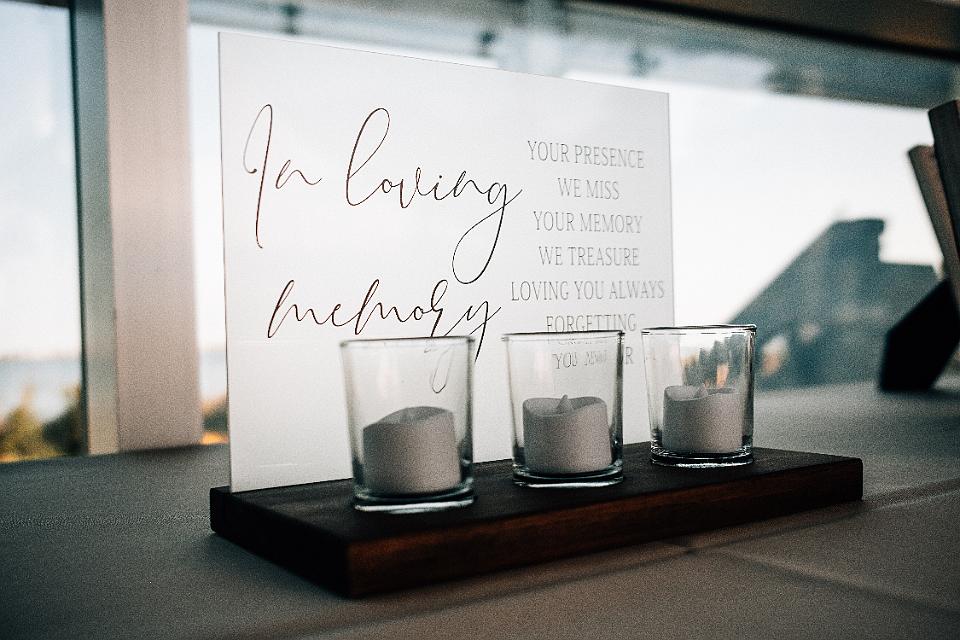 In loving
memory
YOUR PRESENCE
WE MISS
YOUR MEMORY
WE TREASURE
LOVING YOU ALWAYS
FORGETTING
YOU